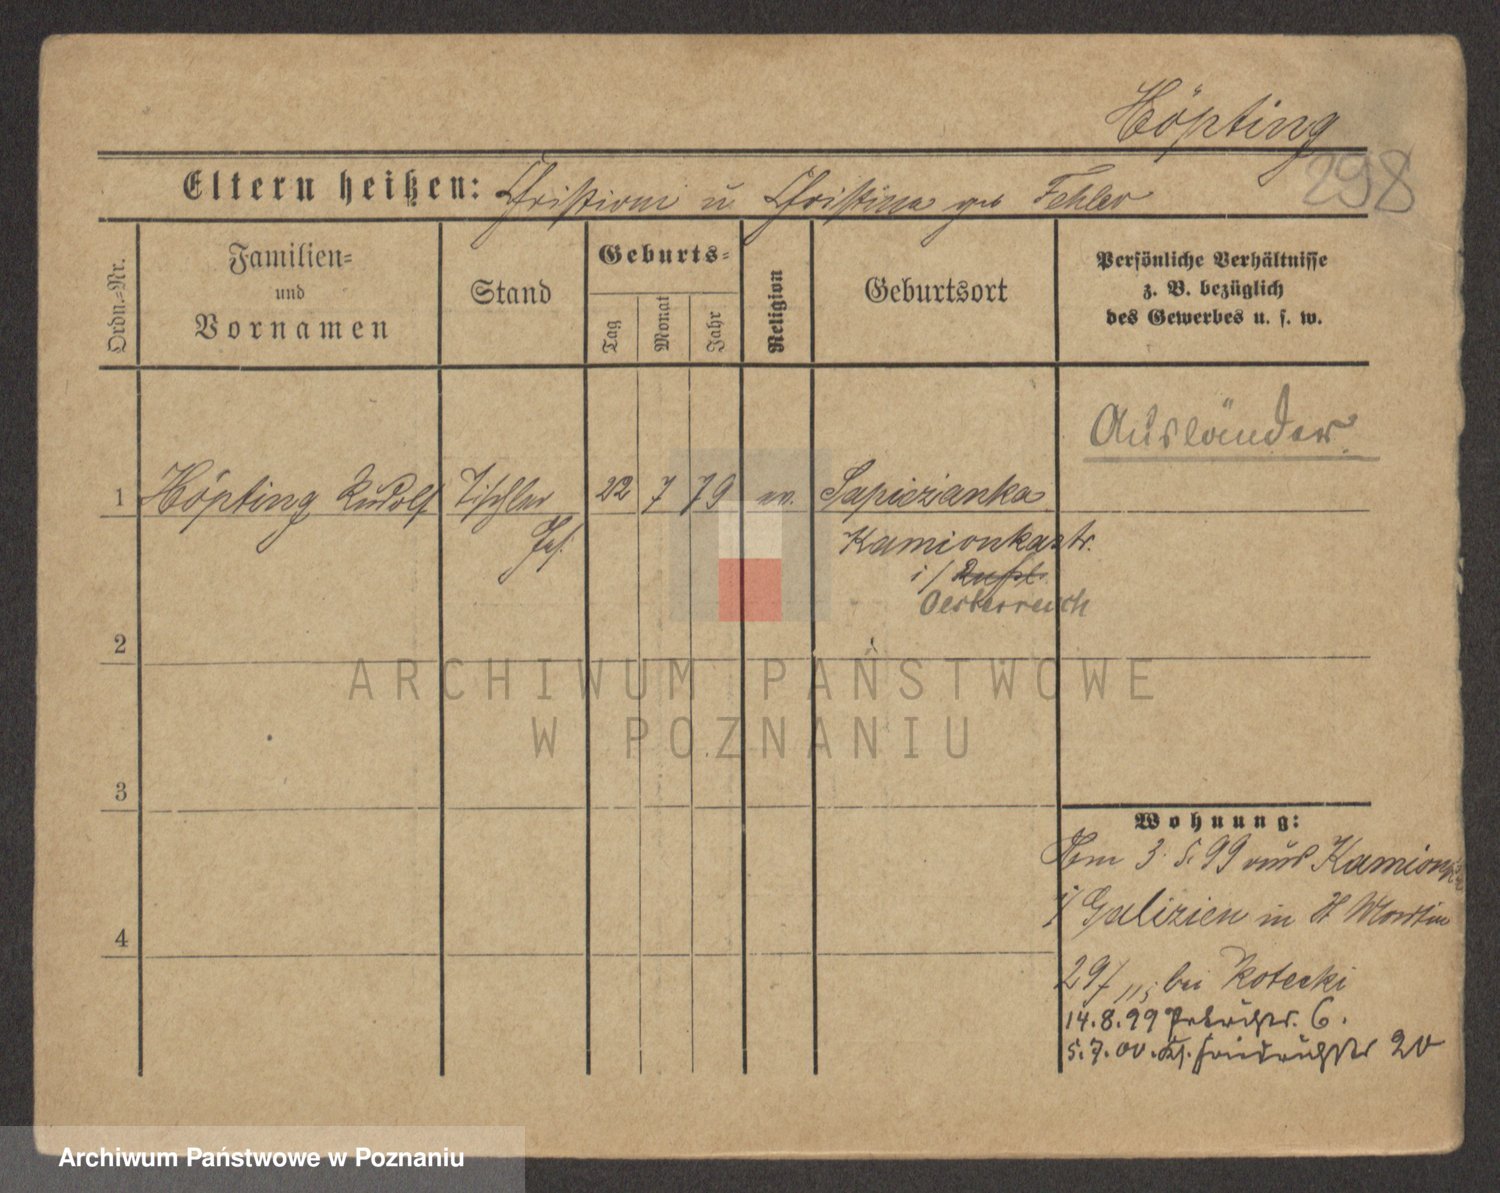 Höpting
298
Eltern heißen: Christian u Christina geb Fehler
Ordn.=Nr.
Familien=
und
Vornamen
Stand
Geburts=
Tag
Monat
Jahr
Religion
Geburtsort
Persönliche Verhältnisse
z. B. bezüglich
des Gewerbes u. s. w.
Ausländer
1 Höpting Rudolf Tischler 22 7 79 ev. Sapiezianka
Kamionkastr.
i/ Rußl.
Oesterreich
2
3
4
Wohnung:
3. 5. 99 aus Kamionka
i/ Galizien in St Martin
29/ bei Kotecki
14.8.99 6.
5.7.00. 20
ARCHIWUM PAŃSTWOWE
W POZNANIU
Archiwum Państwowe w Poznaniu